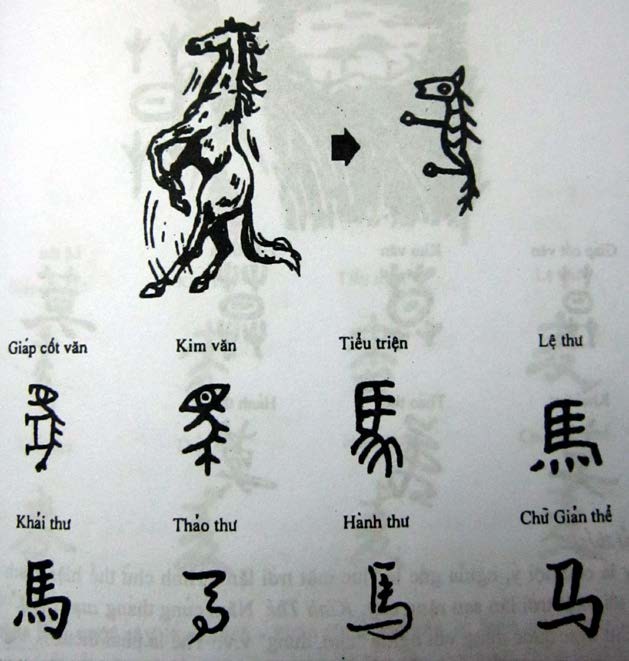 Giáp cốt văn Kim văn Tiểu triện Lệ thư
馬 馬 馬 馬
Khải thư Thảo thư Hành thư Chữ Giản thể
馬 馬 馬 马